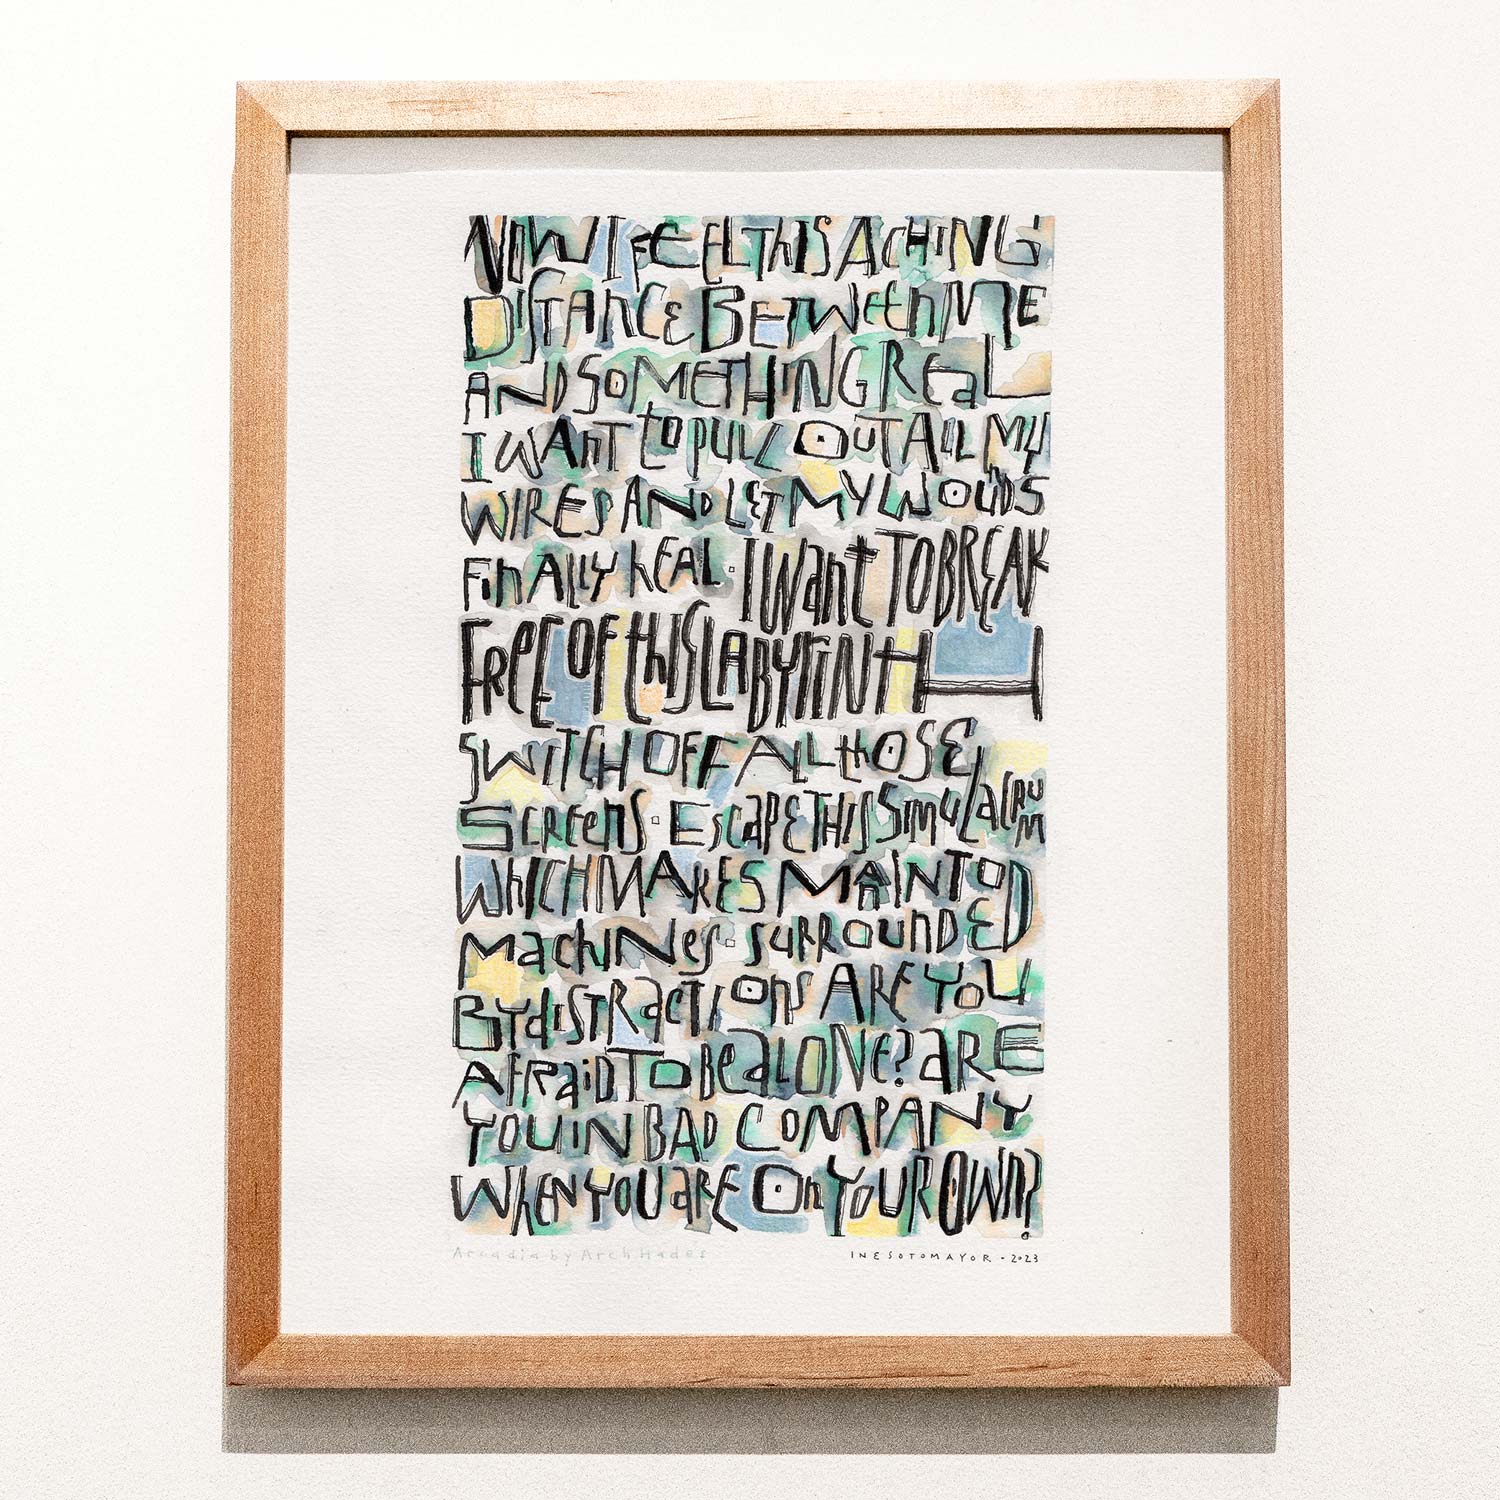 NOW I FEEL THIS ACHING
DISTANCE BETWEEN ME
AND SOMETHING REAL
I WANT TO PULL OUT ALL MY
WIRES AND LET MY WOUNDS
FINALLY HEAL · I WANT TO BREAK
FREE OF THIS LABYRINTH
SWITCH OFF ALL THOSE
SCREENS · ESCAPE THIS SIMULACRUM
WHICH MAKES MAN INTO
MACHINES · SURROUNDED
BY DISTRACTIONS ARE YOU
AFRAID TO BE ALONE? ARE
YOU IN BAD COMPANY
WHEN YOU ARE ON YOUR OWN?
Arcadia by Arch Hades
INESOTOMAYOR - 2023